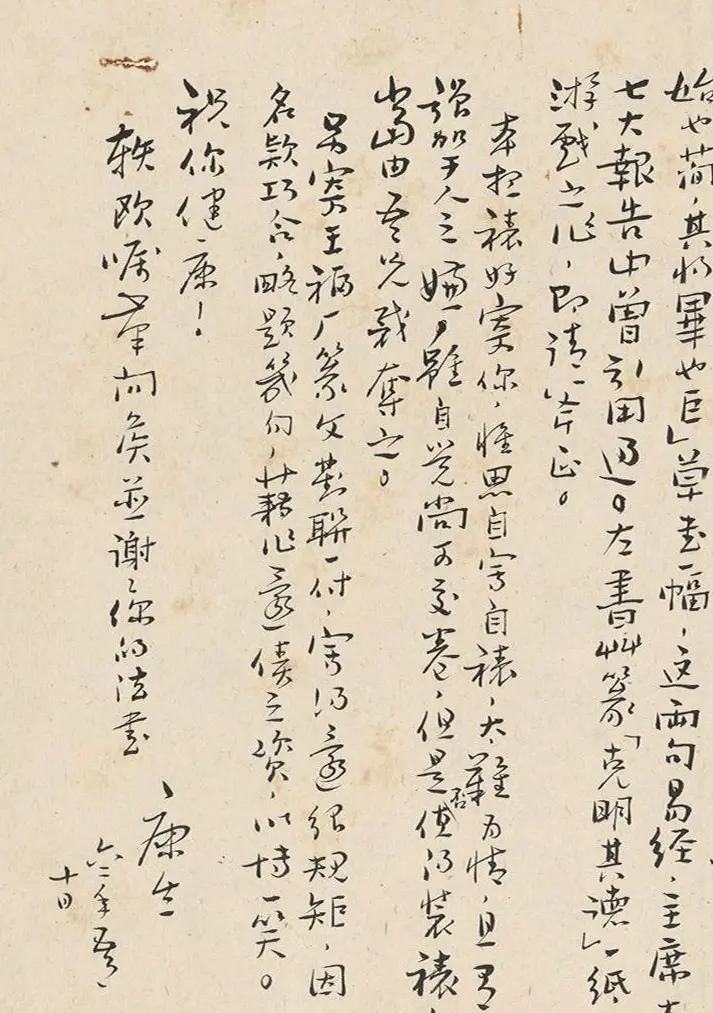 始也简,其将毕也巨」草书一幅,这两句易经,主席在
七大报告中曾引用过。左书草篆「克明其德」一纸
游戏之作,即请斧正。
本想裱好寄你,惟思自写自裱,太难为情,且有
强加于人之嫌,虽自觉尚可交卷,但是否值得装裱,
当由吾兄裁夺之。
另寄王福厂篆文对联一付,写得还很规矩,因
名款巧合,略题几句,藉作还债之资,以博一笑。
祝你健康!
轶欧嘱笔问候并谢谢你的法书
康生
六二年五
十日